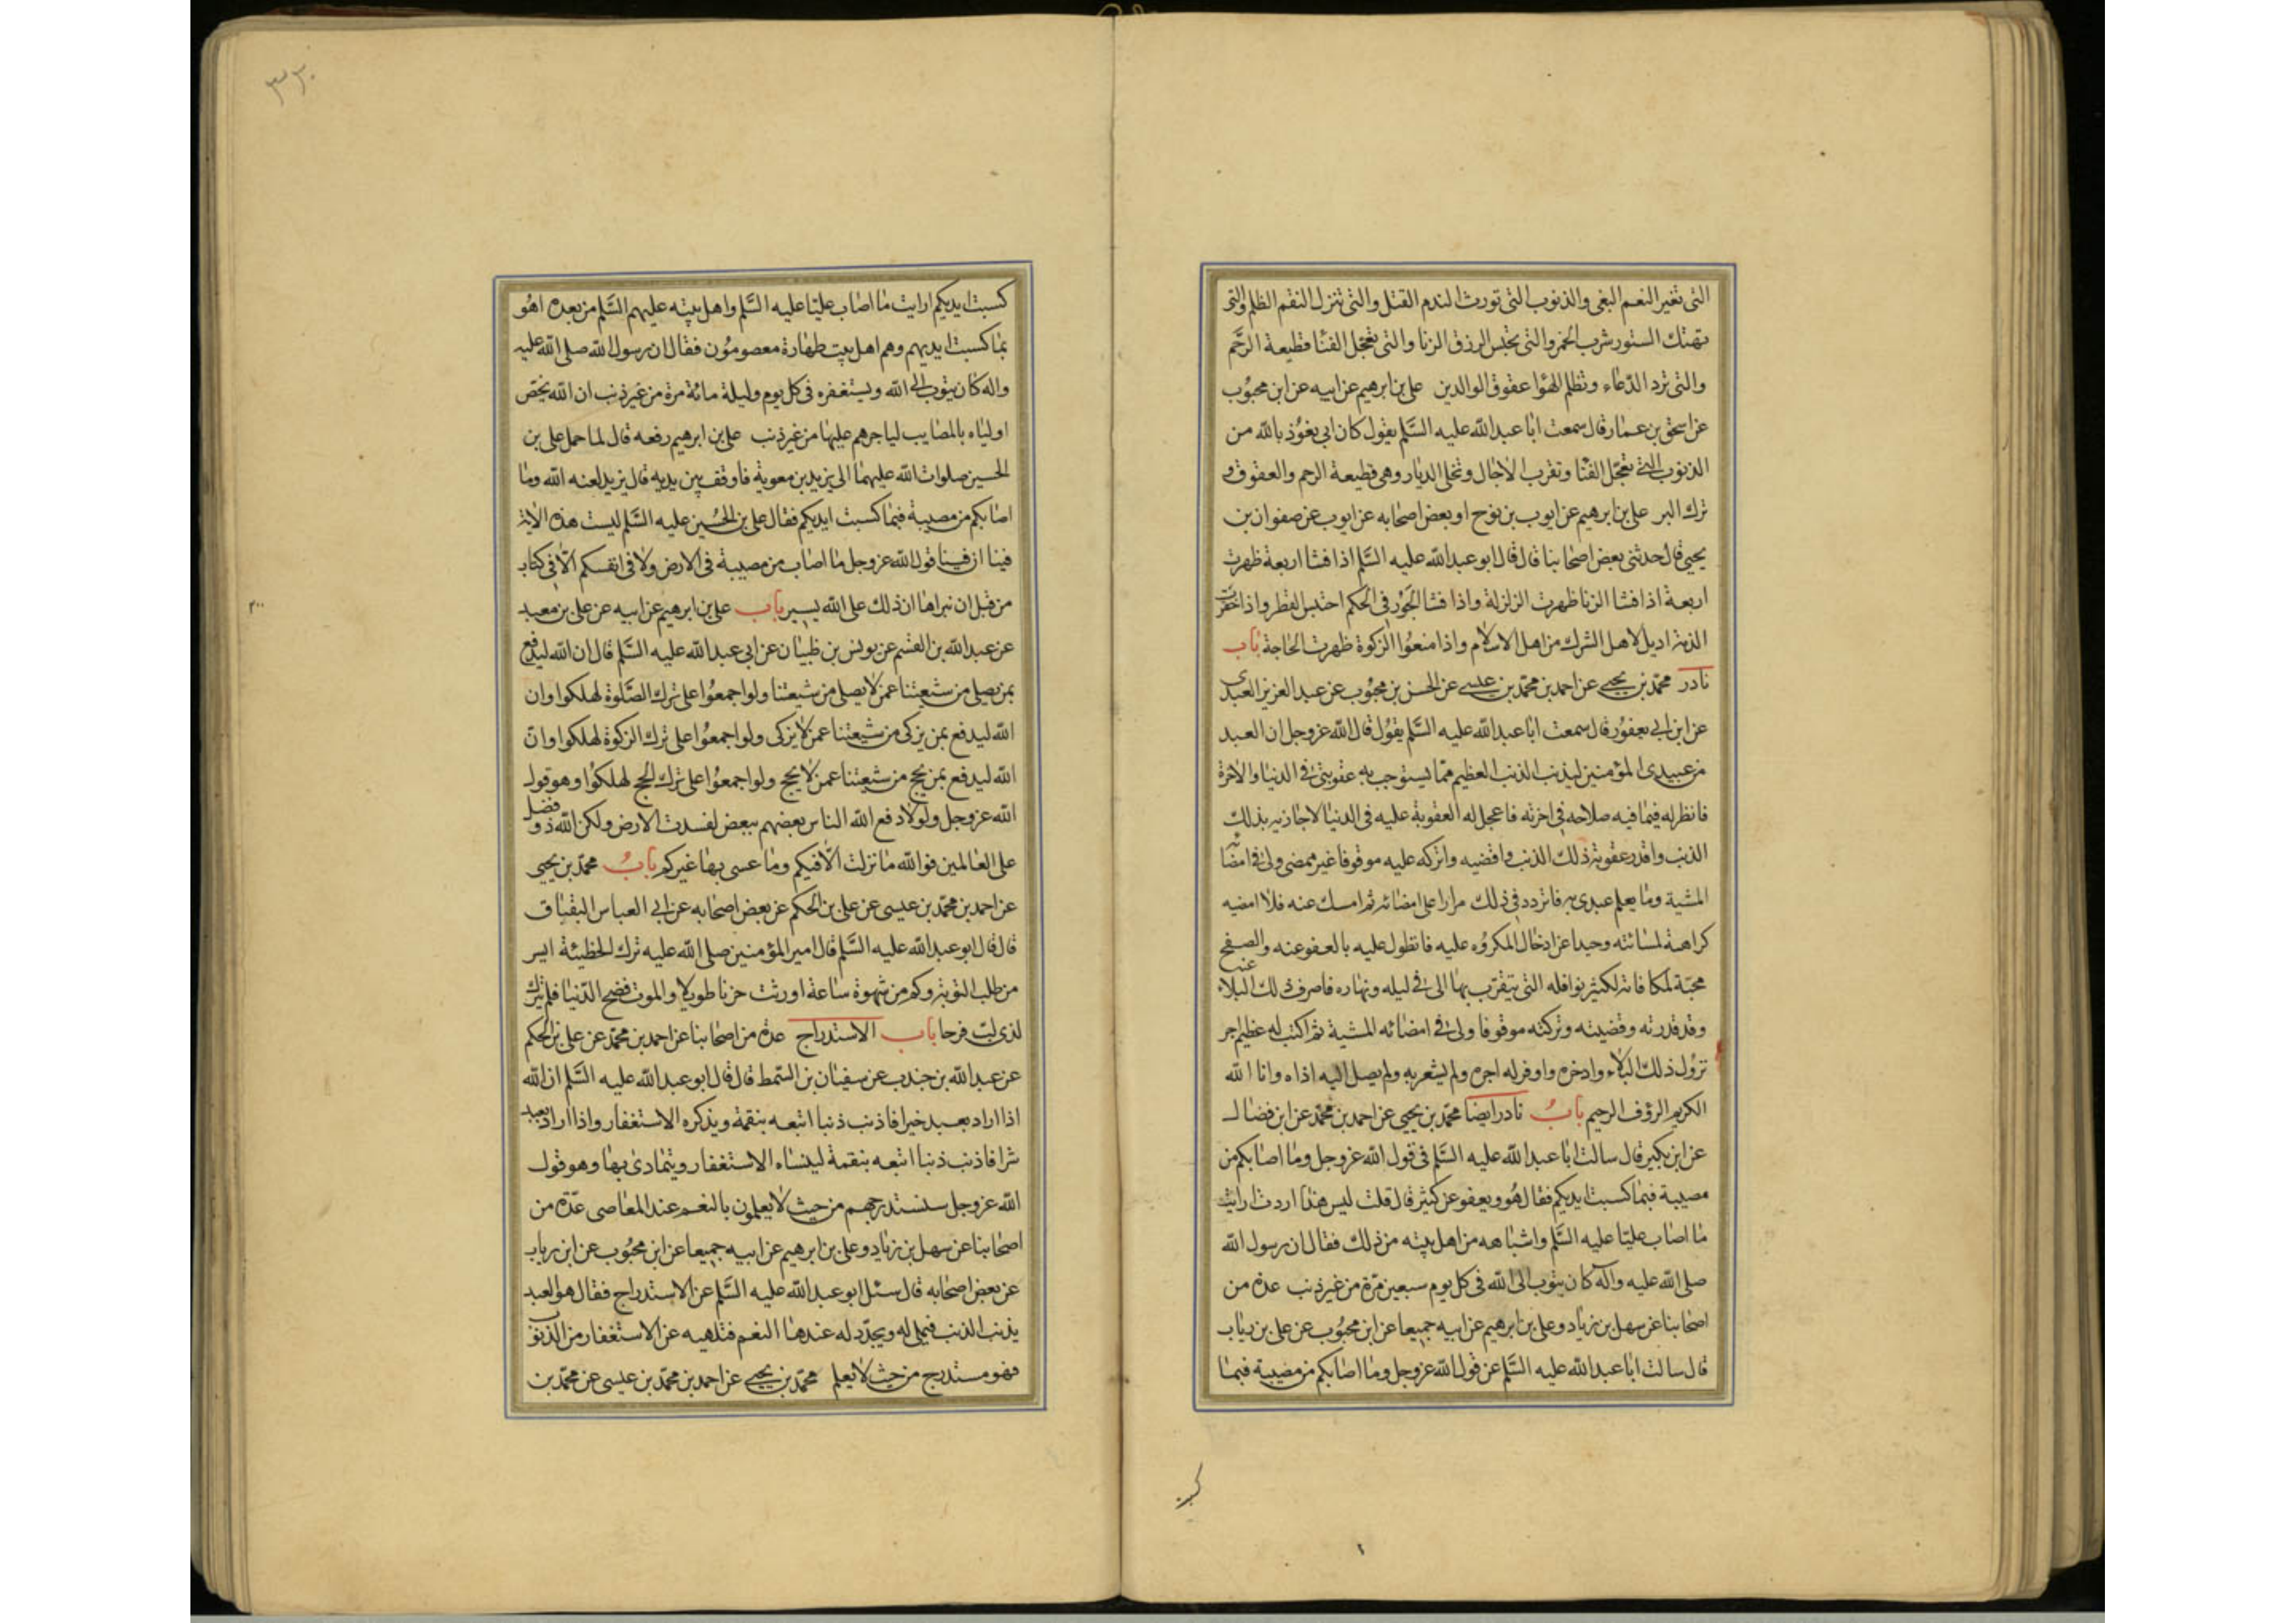 التى تغير النعم البغى والذنوب التى تورث الندم القتل والتى تنزل النقم الظلم والتى
تهتك الستور شرب الخمر والتى تحبس الرزق الزنا والتى تعجّل الفنا قطيعة الرحم
والتى ترد الدعاء وتظلم الهوا عقوق الوالدين على بن ابرهيم عن ابيه عن ابن محبوب
عن اسحق بن عمار قال سمعت ابا عبدالله عليه السّلم يقول كان ابى يعوذ بالله من
الذنوب التى تعجّل الفنا وتقرب الاجال وتخلى الديار وهى قطيعة الرحم والعقوق و
ترك البر على بن ابرهيم عن ايوب بن نوح او بعض اصحابه عن ايوب عن صفوان بن
يحيى قال حدثنى بعض اصحابنا قال قال ابو عبدالله عليه السّلم اذا فشا اربعة ظهرت
اربعة اذا فشا الزنا ظهرت الزلزلة واذا فشا الجور فى الحكم احتبس القطر واذا خفرت
الذمة اديل لاهل الشرك من اهل الاسلام واذا منعوا الزكوة ظهرت الحاجة باب
نادر محمّد بن يحيى عن احمد بن محمّد بن عيسى عن الحسن بن محبوب عن عبد العزيز العبدى
عن ابن ابى يعفور قال سمعت ابا عبدالله عليه السّلم يقول قال الله عزوجل ان العبد
من عبيدى المؤمنين ليذنب الذنب العظيم ممّا يستوجب به عقوبتى فى الدنيا والاخرة
فانظر له فيما فيه صلاحه فى اخرته فاعجل له العقوبة عليه فى الدنيا لاجازيه بذلك
الذنب واقدر عقوبة ذلك الذنب واقضيه واتركه عليه موقوفا غير ممضى ولى فى امضائه
المشية وما يعلم عبدى به فاتردد فى ذلك مرارا على امضائه ثم امسك عنه فلا امضيه
كراهة لمسائته وحيدا عن ادخال المكروه عليه فاتطول عليه بالعفو عنه والصفح
محبّة لمكافاته لكثير نوافله التى يتقرّب بها الى فى ليله ونهاره فاصرف ذلك البلاء عنه
وقد قدرته وقضيته وتركته موقوفا ولى فى امضائه المشية ثم اكتب له عظيم اجر
نزول ذلك البلاء وادخره واوفر له اجره ولم يشعر به ولم يصل اليه اذاه وانا الله
الكريم الرؤف الرحيم بابٌ نادر ايضا محمّد بن يحيى عن احمد بن محمّد عن ابن فضال
عن ابن بكير قال سالت ابا عبدالله عليه السّلم فى قول الله عزوجل وما اصابكم من
مصيبة فبما كسبت ايديكم فقال هو ويعفو عن كثير قال قلت ليس هذا اردت ارايت
ما اصاب عليّا عليه السّلم واشباهه من اهل بيته من ذلك فقال ان رسول الله
صلى الله عليه وآله كان يتوب الى الله فى كل يوم سبعين مرّة من غير ذنب عدة من
اصحابنا عن سهل بن زياد وعلى بن ابرهيم عن ابيه جميعا عن ابن محبوب عن على بن رياب
قال سالت ابا عبدالله عليه السّلم عن قول الله عزوجل وما اصابكم من مصيبة فبما
٣٣٠
كسبت ايديكم ارايت ما اصاب عليّا عليه السّلم واهل بيته عليهم السّلم من بعده اهو
بما كسبت ايديهم وهم اهل بيت طهارة معصومون فقال ان رسول الله صلى الله عليه
واله كان يتوب الى الله ويستغفره فى كل يوم وليلة مائة مرة من غير ذنب ان الله يخص
اولياه بالمصايب لياجرهم عليها من غير ذنب على بن ابرهيم رفعه قال لما حمل على بن
الحسين صلوات الله عليهما الى يزيد بن معوية فاوقف بين يديه قال يزيد لعنه الله وما
اصابكم من مصيبة فبما كسبت ايديكم فقال على بن الحسين عليه السّلم ليست هذه الاية
فينا ان فينا قول الله عزوجل ما اصاب من مصيبة فى الارض ولا فى انفسكم الّا فى كتاب
من قبل ان نبراها ان ذلك على الله يسير باب على بن ابرهيم عن ابيه عن على بن معبد
عن عبدالله بن القسم عن يونس بن ظبيان عن ابى عبدالله عليه السّلم قال ان الله ليدفع
بمن يصلى من شيعتنا عمن لا يصلى من شيعتنا ولو اجمعوا على ترك الصّلوة لهلكوا وان
الله ليدفع بمن يزكى من شيعتنا عمن لا يزكى ولو اجمعوا على ترك الزكوة لهلكوا وانّ
الله ليدفع بمن يحج من شيعتنا عمن لا يحج ولو اجمعوا على ترك الحج لهلكوا وهو قول
الله عزوجل ولولا دفع الله الناس بعضهم ببعض لفسدت الارض ولكن الله ذو فضل
على العالمين فوالله ما نزلت الّا فيكم وما عسى بها غيركم بابٌ محمّد بن يحيى
عن احمد بن محمّد بن عيسى عن على بن الحكم عن بعض اصحابه عن ابى العباس البقباق
قال قال ابو عبدالله عليه السّلم قال امير المؤمنين صلى الله عليه ترك الخطيئة ايسر
من طلب التوبة وكم من شهوة ساعة اورثت حزنا طويلا والموت فضح الدّنيا فلم يترك
لذى لبّ فرحا باب الاستدراج عدة من اصحابنا عن احمد بن محمّد عن على بن الحكم
عن عبدالله بن جندب عن سفيان بن السّمط قال قال ابو عبدالله عليه السّلم ان الله
اذا اراد بعبد خيرا فاذنب ذنبا اتبعه بنقمة ويذكره الاستغفار واذا اراد بعبد
شرا فاذنب ذنبا اتبعه بنقمة لينساه الاستغفار ويتمادى بها وهو قول
الله عزوجل سنستدرجهم من حيث لا يعلمون بالنعم عند المعاصى عدّة من
اصحابنا عن سهل بن زياد وعلى بن ابرهيم عن ابيه جميعا عن ابن محبوب عن ابن رياب
عن بعض اصحابه قال سئل ابو عبدالله عليه السّلم عن الاستدراج فقال هو العبد
يذنب الذنب فيملى له ويجدّد له عندها النعم فتلهيه عن الاستغفار من الذنوب
فهو مستدرج من حيث لا يعلم محمّد بن يحيى عن احمد بن محمّد بن عيسى عن محمّد بن